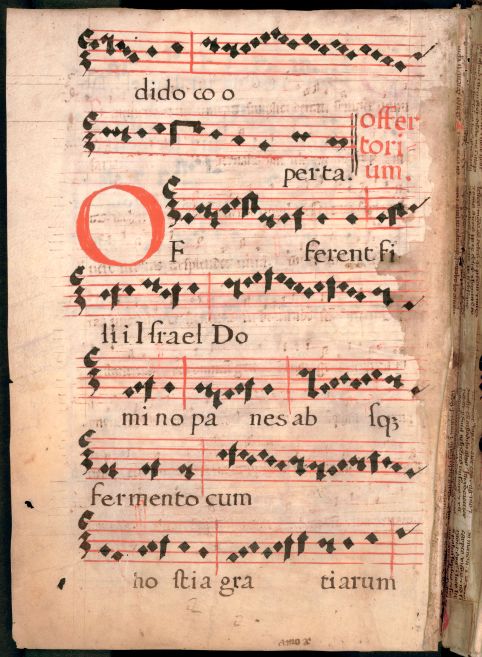 dido co o
perta. offer
tori
um.
OF ferent fi
lii Israel Do
mi no pa nes ab sqꝫ
fermento cum
ho stia gra tiarum